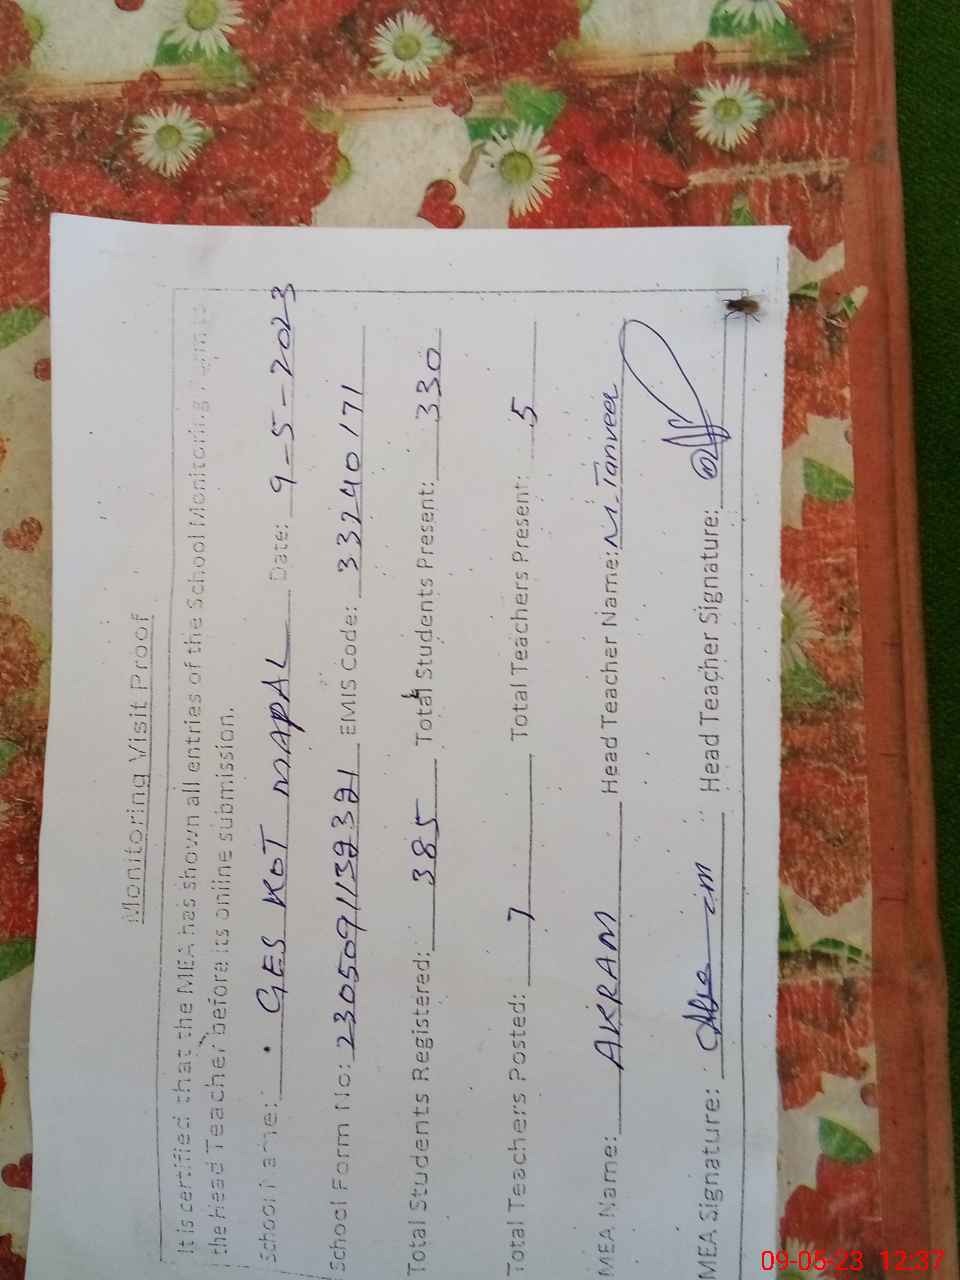 Monitoring Visit Proof
It is certified that the MEA has shown all entries of the School Monitoring Form to
the Head Teacher before its online submission.
School Name: GES KOT MAPAL Date: 9-5-2023
School Form No: 2305091132321 EMIS Code: 33240171
Total Students Registered: 385 Total Students Present: 330
Total Teachers Posted: 7 Total Teachers Present: 5
MEA Name: AKRAM Head Teacher Name: M. Tanveer
MEA Signature: Head Teacher Signature:
09-05-23 12:37